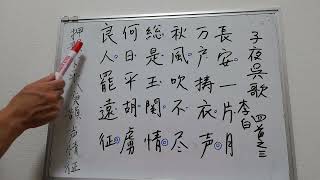 子夜呉歌 四首之三
李白
長安一片月
万户擣衣声
秋風吹不尽
総是玉関情
何日平胡虜
良人罷遠征
押 韻声情征